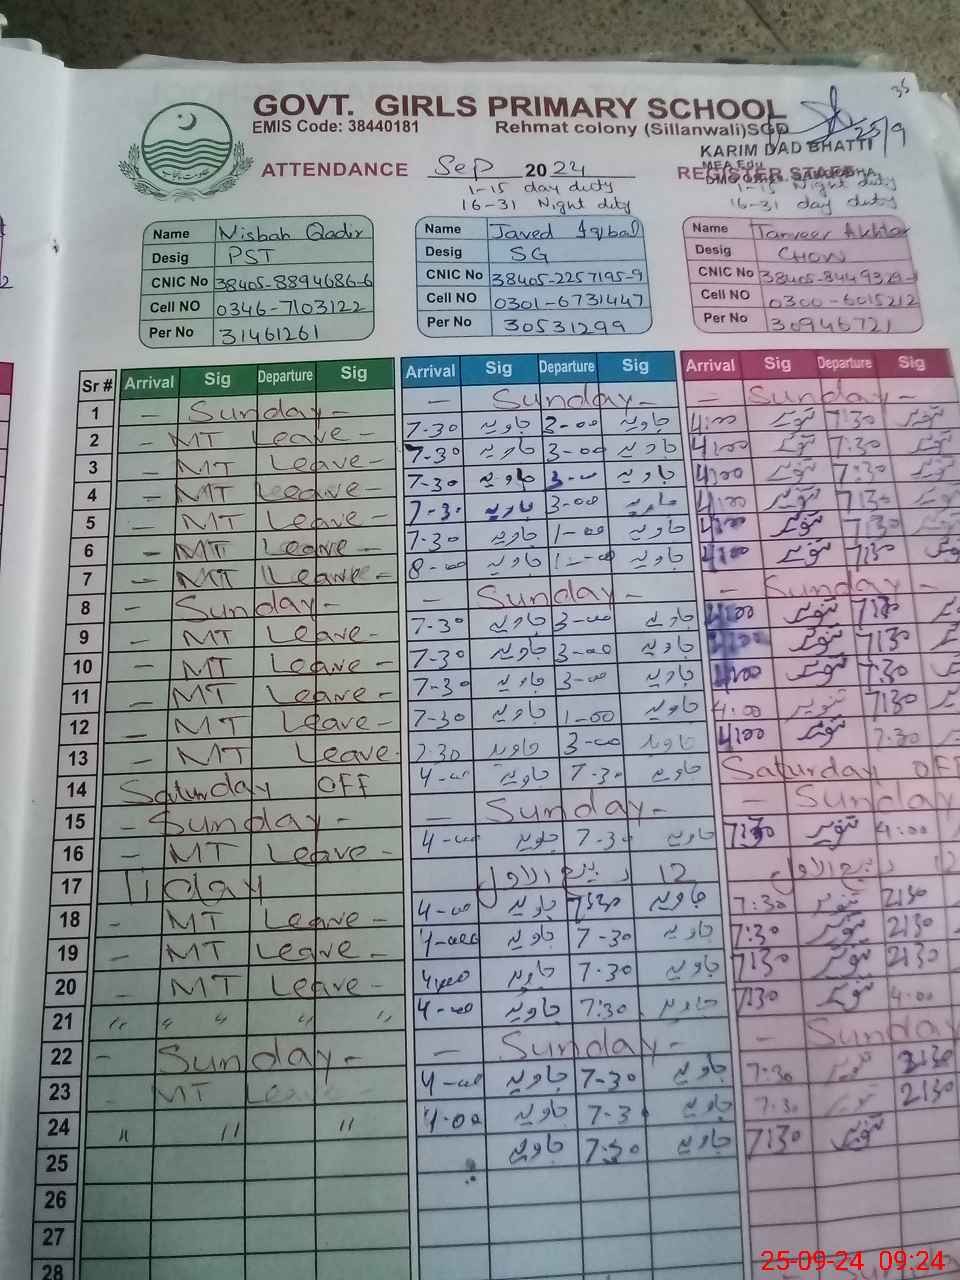 35
GOVT. GIRLS PRIMARY SCHOOL
EMIS Code: 38440181 Rehmat colony (Sillanwali)SGD
25/9
KARIM DAD BHATTI
MEA Edu
ATTENDANCE Sep 2024 REGISTER STAFF
1-15 day duty 1-15 Night duty
16-31 Night duty 16-31 day duty
Name Misbah Qadir Name Javed Iqbal Name Tanveer Akhtar
Desig PST Desig SG Desig CHOW
CNIC No 38405-8894686-6 CNIC No 38405-2257195-9 CNIC No 38405-8449329-
Cell NO 0346-7103122 Cell NO 0301-6731447 Cell NO 0300-6015212
Per No 31461261 Per No 30531299 Per No 30946721
Sr # Arrival Sig Departure Sig Arrival Sig Departure Sig Arrival Sig Departure Sig
1 - Sunday - - Sunday - - Sunday -
2 - MT Leave - 7-30 جاوید 3-00 جاوید 4:00 تنویر 7:30 تنویر
3 - MT Leave - 7-30 جاوید 3-00 جاوید 4:00 تنویر 7:30 تنویر
4 - MT Leave - 7-30 جاوید 3-00 جاوید 4:00 تنویر 7:30 تنویر
5 - MT Leave - 7-30 جاوید 3-00 جاوید 4:00 تنویر 7:30 تنویر
6 - MT Leave - 7-30 جاوید 1-00 جاوید 4:00 تنویر 7:30
7 - MT Leave - 8-00 جاوید 1-00 جاوید 4:00 تنویر 7:30
8 - Sunday - - Sunday - - Sunday -
9 - MT Leave - 7-30 جاوید 3-00 جاوید 4:00 تنویر 7:30
10 - MT Leave - 7-30 جاوید 3-00 جاوید 4:00 تنویر 7:30
11 - MT Leave - 7-30 جاوید 3-00 جاوید 4:00 تنویر 7:30
12 - MT Leave - 7-30 جاوید 1-00 جاوید 4:00 تنویر 7:30
13 - MT Leave - 7-30 جاوید 3-00 جاوید 4:00 تنویر 7:30
14 Saturday OFF 4-00 جاوید 7-30 جاوید Saturday OFF
15 - Sunday - - Sunday - - Sunday
16 - MT Leave - 4-00 جاوید 7-30 جاوید 7:30 تنویر 4:00
17 11 day 12 ربیع الاول 12 ربیع الاول
18 - MT Leave - 4-00 جاوید 7:30 جاوید 7:30 تنویر 2:30
19 - MT Leave - 4-00 جاوید 7-30 جاوید 7:30 تنویر 2:30
20 - MT Leave - 4-00 جاوید 7-30 جاوید 7:30 تنویر 2:30
21 " " " " " 4-00 جاوید 7:30 جاوید 7:30 تنویر 4:00
22 - Sunday - - Sunday - - Sunday
23 MT Leave - 4-00 جاوید 7-30 جاوید 7:30 تنویر 2:30
24 " " " 4-00 جاوید 7-3 جاوید 7:30 تنویر 2:30
25 جاوید 7:30 جاوید 7:30 تنویر
26
27
28
25-09-24 09:24